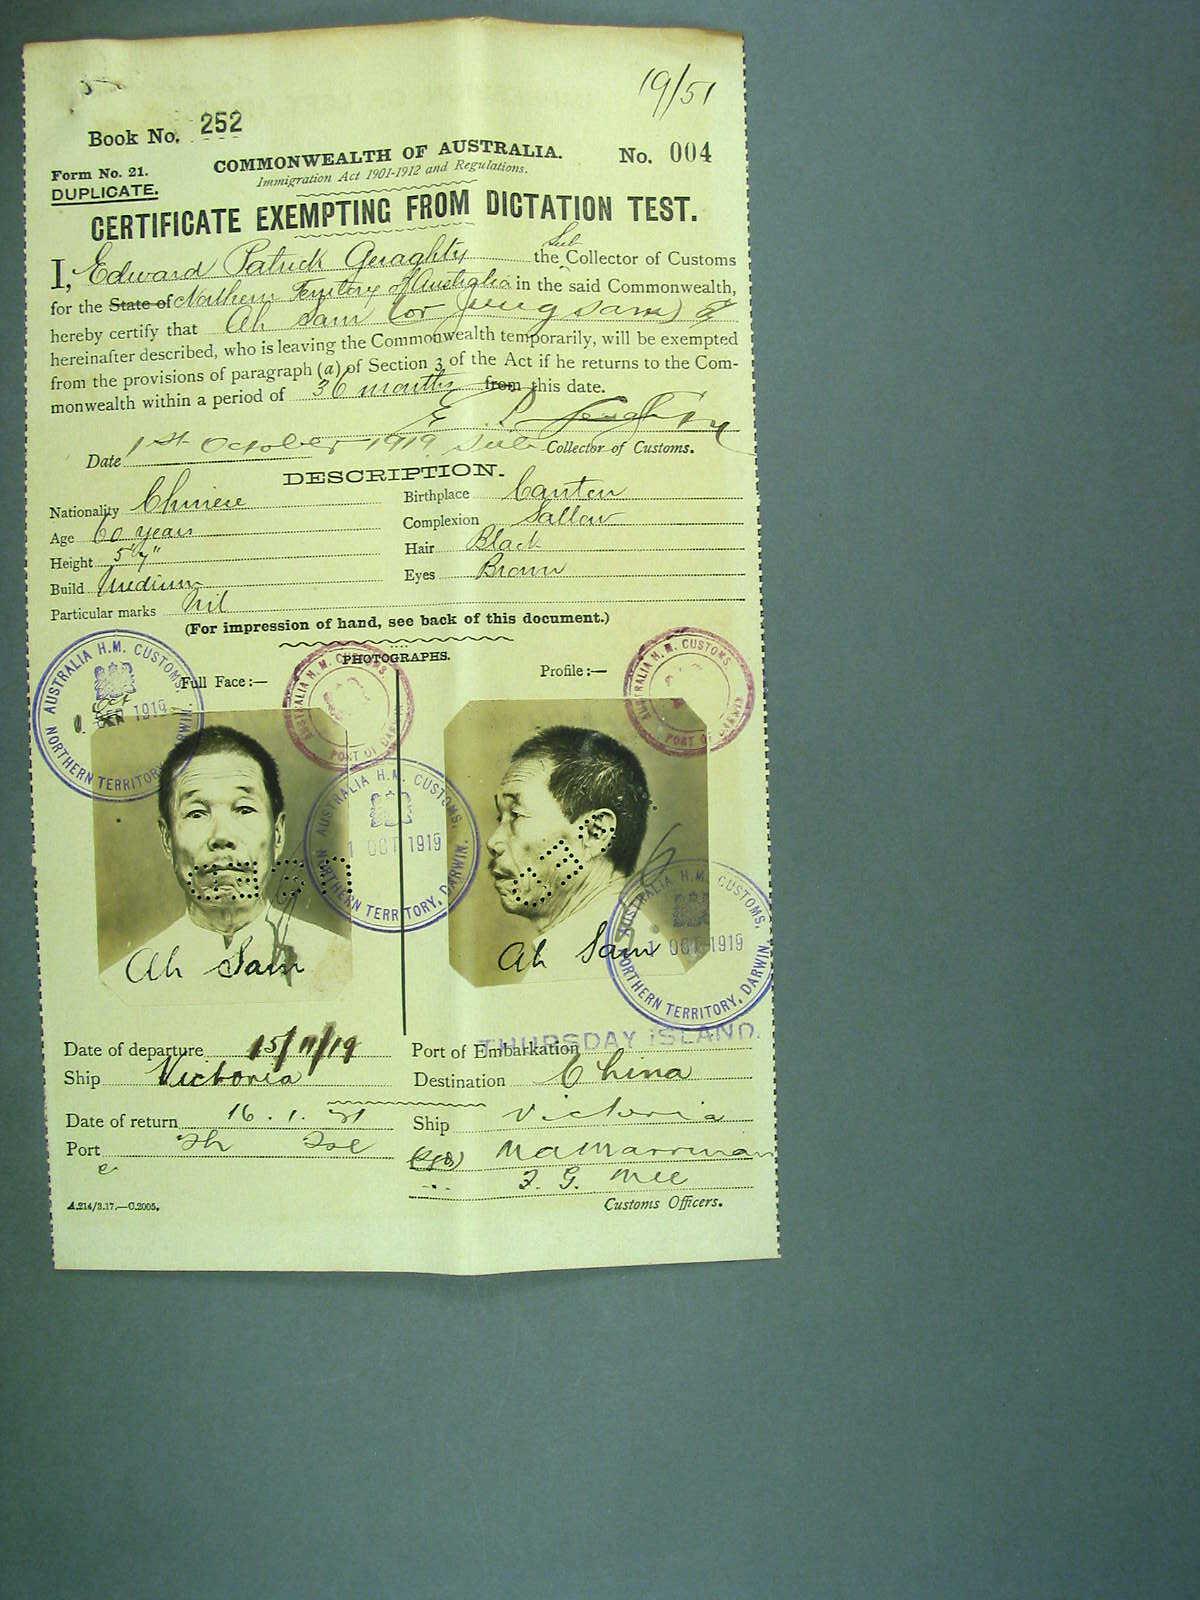 19/51
Book No. 252
COMMONWEALTH OF AUSTRALIA. No. 004
Form No. 21.
Immigration Act 1901-1912 and Regulations.
DUPLICATE.
CERTIFICATE EXEMPTING FROM DICTATION TEST.
I, Edward Patrick Geraghty the Sub Collector of Customs
for the State of Northern Territory of Australia in the said Commonwealth,
hereby certify that Ah Sam (or Jung Sam)
hereinafter described, who is leaving the Commonwealth temporarily, will be exempted
from the provisions of paragraph (a) of Section 3 of the Act if he returns to the Com-
monwealth within a period of 36 months from this date.
Date 1st October 1919 Sub Collector of Customs.
DESCRIPTION.
Nationality Chinese Birthplace Canton
Age 60 years Complexion Sallow
Height 5' 7" Hair Black
Build Medium Eyes Brown
Particular marks Nil
(For impression of hand, see back of this document.)
PHOTOGRAPHS.
Full Face:— Profile:—
AUSTRALIA H.M. CUSTOMS. Oct 1919 NORTHERN TERRITORY, DARWIN.
AUSTRALIA H. M. CUSTOMS. PORT OF DARWIN
AUSTRALIA H. M. CUSTOMS. PORT OF DARWIN
AUSTRALIA H.M. CUSTOMS. 1 OCT 1919 NORTHERN TERRITORY, DARWIN.
AUSTRALIA H.M. CUSTOMS. 1 OCT 1919 NORTHERN TERRITORY, DARWIN.
Ah Sam Ah Sam
THURSDAY ISLAND.
Date of departure 15/11/19 Port of Embarkation
Ship Victoria Destination China
Date of return 16.1.21 Ship Victoria
Port Th Isl (Sgd)
F. G. Mee
A.214/3.17.—C.2005. Customs Officers.